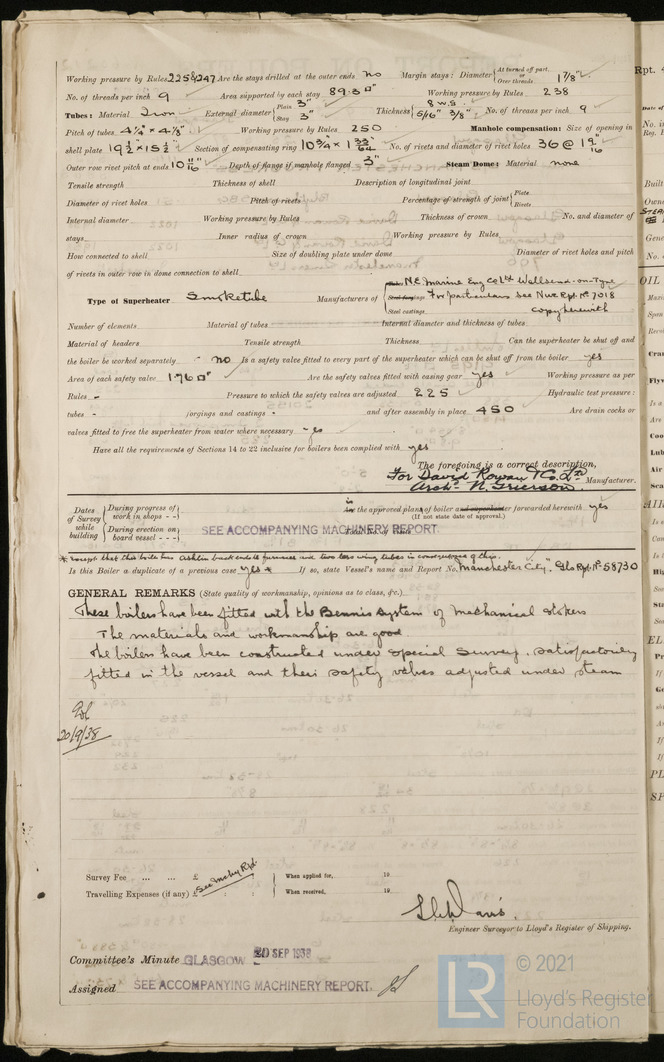 Working pressure by Rules 225 & 247 Are the stays drilled at the outer ends no Margin stays: Diameter { At turned off part, or Over threads 1 7/8"
No. of threads per inch 9 Area supported by each stay 89.3 □" Working pressure by Rules 238
Tubes: Material Iron External diameter { Plain 3" Stay 3" Thickness { 8 W.G. 5/16" 3/8" No. of threads per inch 9
Pitch of tubes 4 1/4" × 4 1/8" Working pressure by Rules 250 Manhole compensation: Size of opening in
shell plate 19 1/2" × 15 1/2" Section of compensating ring 10 3/4" × 1 No. of rivets and diameter of rivet holes 36 @ 1
Outer row rivet pitch at ends 10 Depth of flange if manhole flanged 3" Steam Dome: Material none
Tensile strength Thickness of shell Description of longitudinal joint
Diameter of rivet holes Pitch of rivets Percentage of strength of joint { Plate Rivets
Internal diameter Working pressure by Rules Thickness of crown No. and diameter of
stays Inner radius of crown Working pressure by Rules
How connected to shell Size of doubling plate under dome Diameter of rivet holes and pitch
of rivets in outer row in dome connection to shell
Type of Superheater Smoketube Manufacturers of N.E. Marine Eng Co Ltd Wallsend-on-Tyne
Steel forgings For particulars see Nwc Rpt. No 7018
Steel castings copy herewith
Number of elements Material of tubes Internal diameter and thickness of tubes
Material of headers Tensile strength Thickness Can the superheater be shut off and
the boiler be worked separately - no Is a safety valve fitted to every part of the superheater which can be shut off from the boiler yes
Area of each safety valve 1.76 □" Are the safety valves fitted with easing gear yes Working pressure as per
Rules - Pressure to which the safety valves are adjusted 225 Hydraulic test pressure:
tubes - forgings and castings - and after assembly in place 450 Are drain cocks or
valves fitted to free the superheater from water where necessary - yes
Have all the requirements of Sections 14 to 22 inclusive for boilers been complied with yes
The foregoing is a correct description,
For David Rowan & Co. Ld
Archd. N. Grierson Manufacturer.
Dates of Survey while building { During progress of work in shops - - During erection on board vessel - - - SEE ACCOMPANYING MACHINERY REPORT.
is the approved plan of boiler and superheater forwarded herewith yes
(If not state date of approval.)
Total No. of visits
* except that this boiler has Ashlin back ends to furnaces and two less wing tubes in consequence of this.
Is this Boiler a duplicate of a previous case yes * If so, state Vessel's name and Report No. "Manchester City". Glo Rpt. No 58730
GENERAL REMARKS (State quality of workmanship, opinions as to class, &c.)
These boilers have been fitted with the Bennis System of mechanical stokers
The materials and workmanship are good.
The boilers have been constructed under special survey, satisfactorily
fitted in the vessel and their safety valves adjusted under steam
20/9/38
Survey Fee ... ... £ See Mchy Rpt. When applied for, 19
Travelling Expenses (if any) £ : : When received, 19
Engineer Surveyor to Lloyd's Register of Shipping.
Committee's Minute GLASGOW 20 SEP 1938
Assigned SEE ACCOMPANYING MACHINERY REPORT.
LR © 2021
Lloyd's Register
Foundation
Rpt. 4
OIL